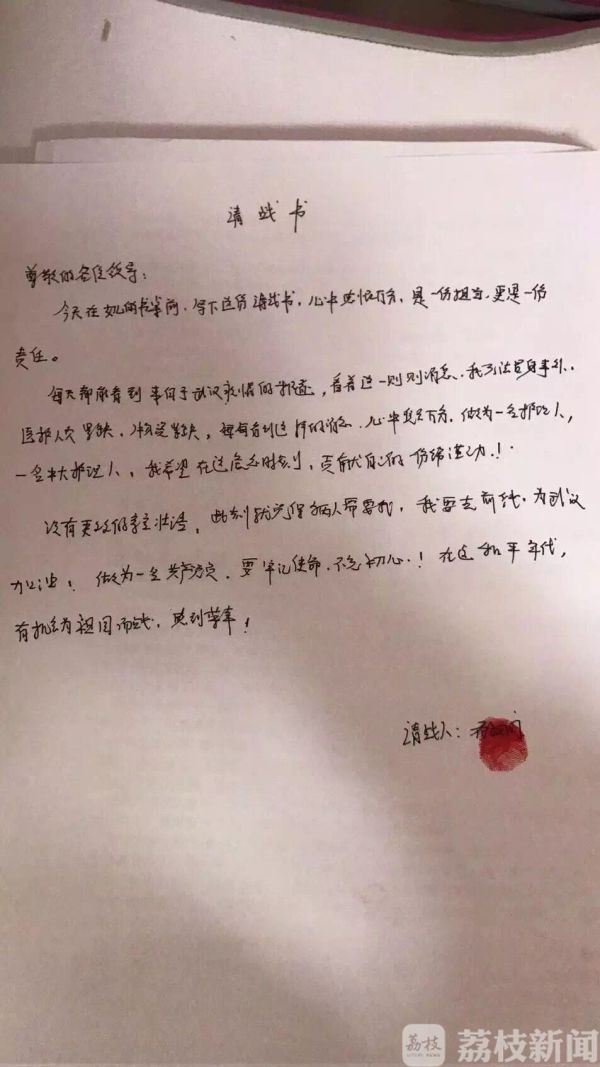 请战书
尊敬的各位领导:
今天在书桌前,写下这份请战书,心中感慨万分,是一份担当,更是一份
责任。
每天都能看到事关于武汉疫情的报道,看着这一则则消息,我无法置身事外。
医护人员紧缺,物资紧缺,每每看到这样的消息,心中万分,做为一名护理人,
一名护理人,我希望在这危急时刻,贡献自己的份绵薄力!
没有更多的豪言壮语,此刻就觉得病人需要我,我要去前线,为武汉
加油!做为一名共产党员,要牢记使命,不忘初心!在这和平年代,
有机会为祖国而战,感到荣幸!
请战人:
荔枝
LITCHI NEWS
荔枝新闻